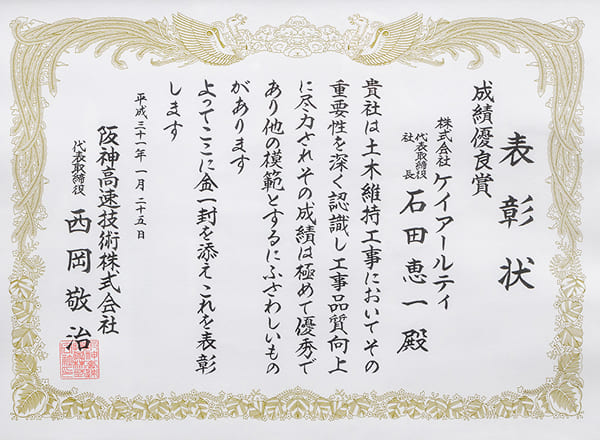 表彰状
成績優良賞
株式会社 ケイアールティ
代表取締役社長 石田恵一殿
貴社は土木維持工事においてその
重要性を深く認識し工事品質向上
に尽力されその成績は極めて優秀で
あり他の模範とするにふさわしいもの
があります
よってここに金一封を添えこれを表彰
します
平成三十一年一月二十五日
阪神高速技術株式会社
代表取締役 西岡敬治